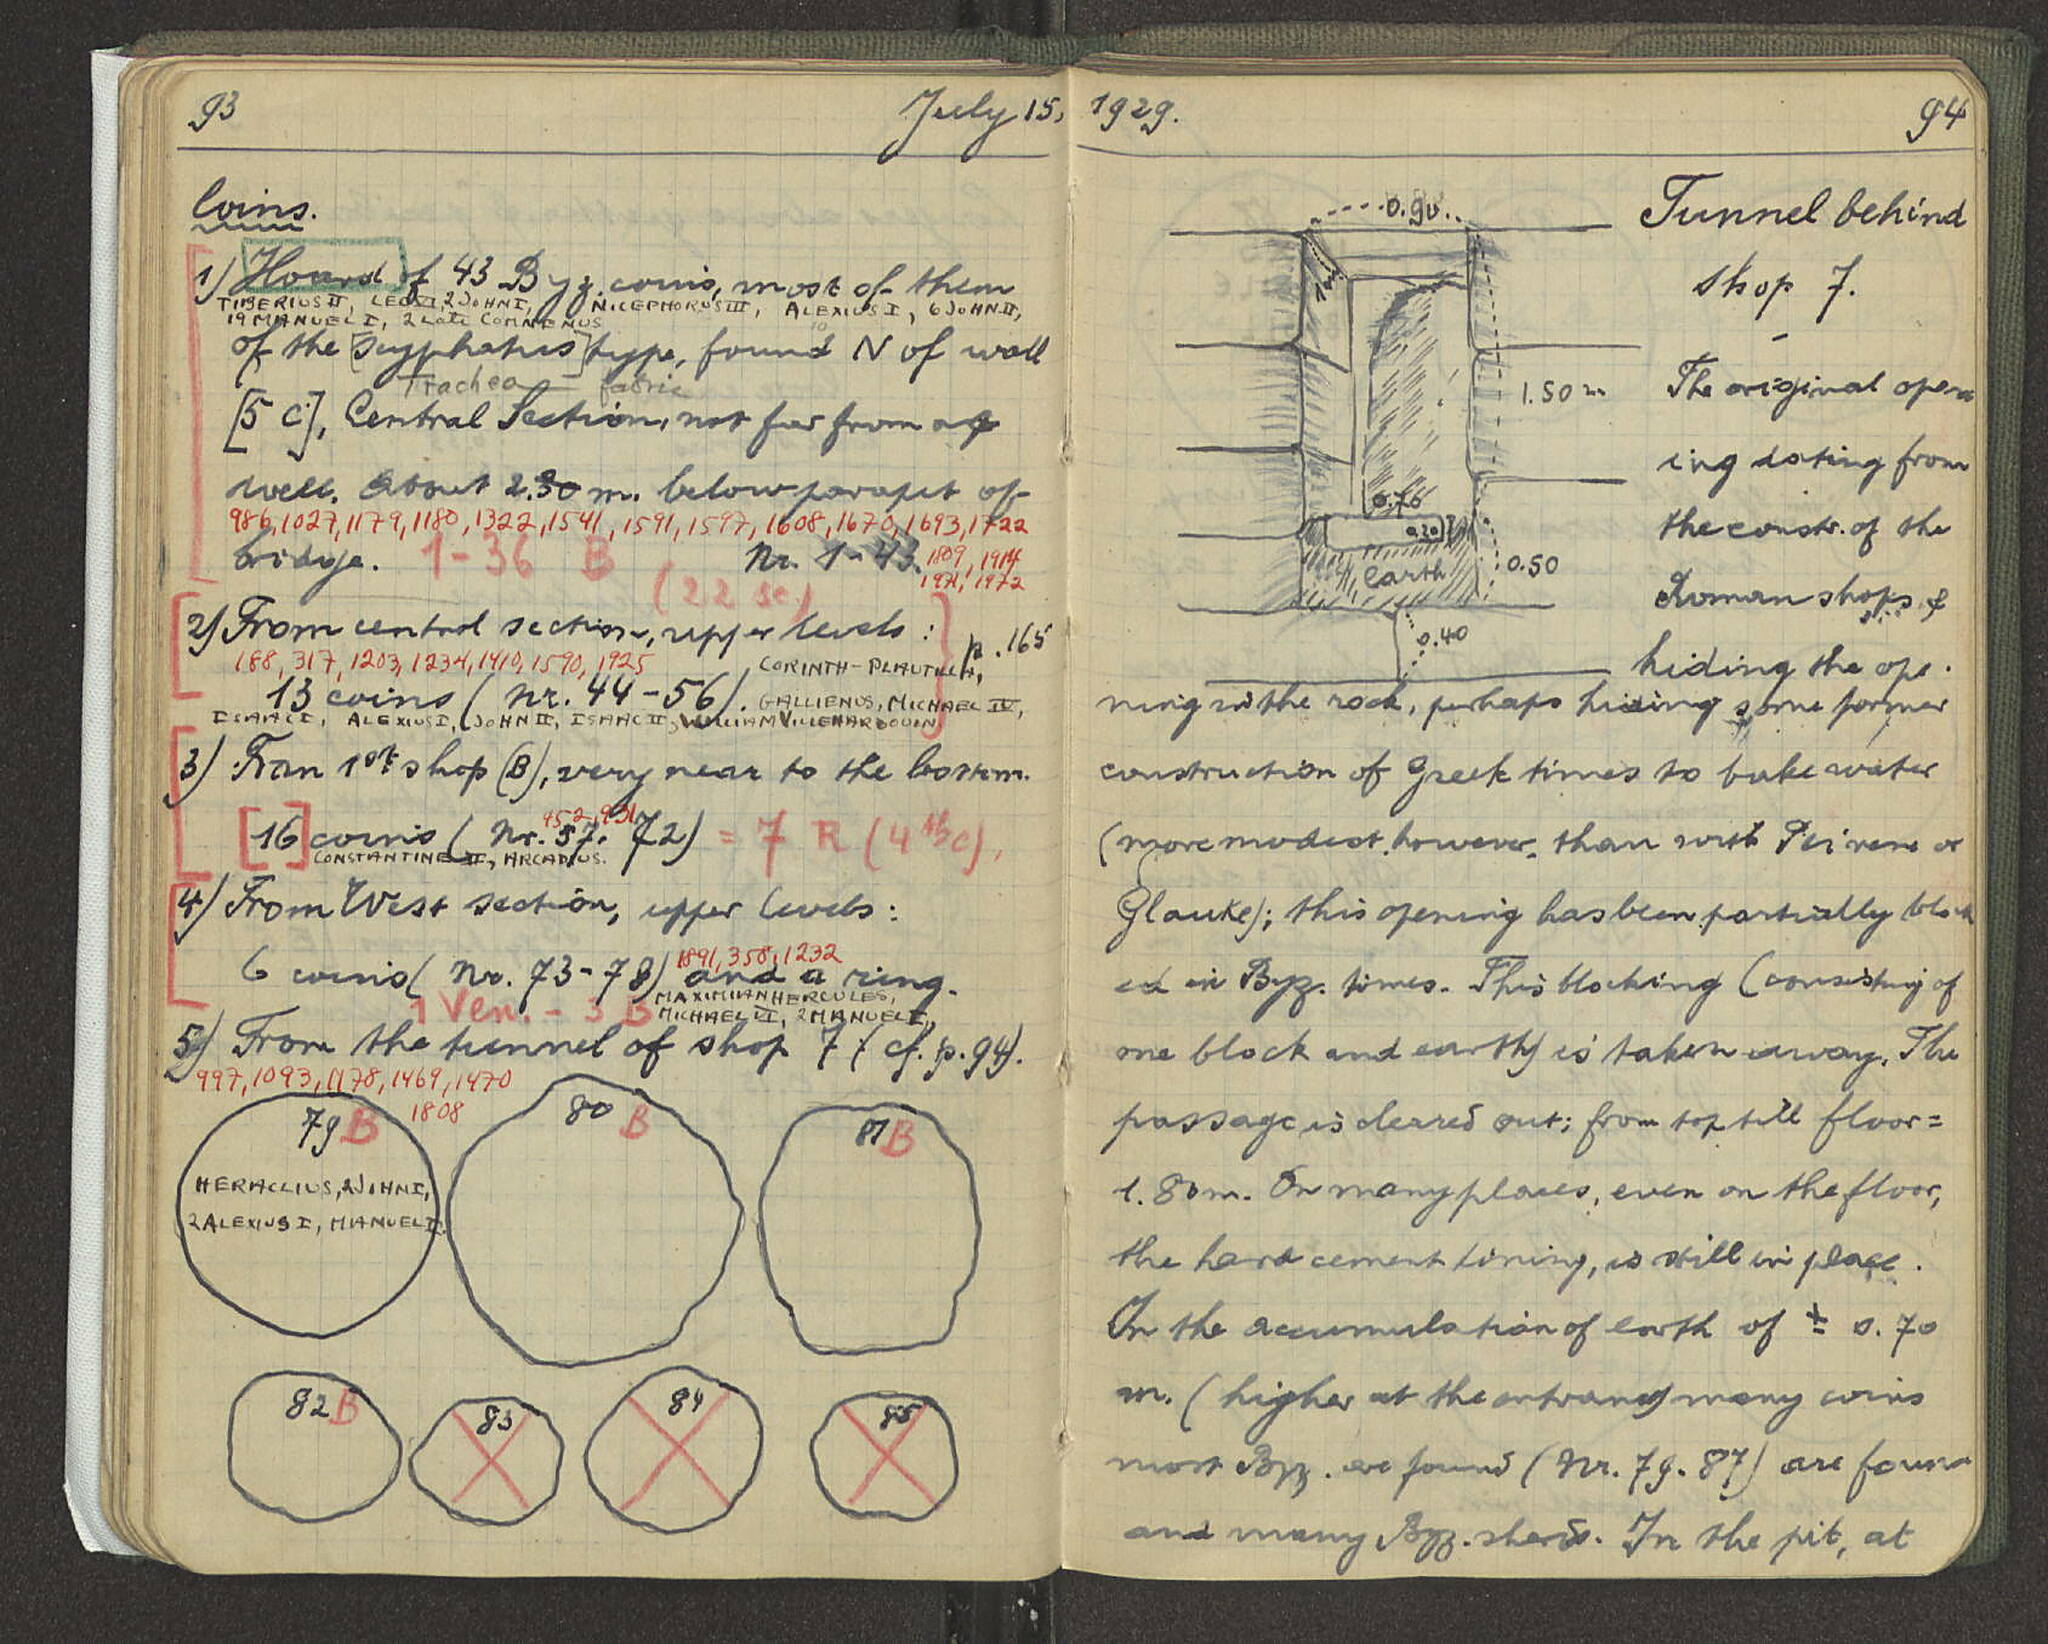 93
July 15,
Coins.
1) Hoard of 43 Byz. coins, most of them
TIBERIUS II, LEO VI, 2 JOHN I, NICEPHORUS III, ALEXIUS I, 6 JOHN II,
19 MANUEL I, 2 Late COMNENUS
of the [scyphatus] type, found N of wall
Trachea fabric
[5 C], Central Section, not far from a
well. About 2.30 m. below parapet of
986, 1027, 1179, 1180, 1322, 1541, 1591, 1597, 1608, 1670, 1693, 1722
bridge. 1-36 B Nr. 1-43. 1809, 1914
1971, 1972
(22 sc.)
2) From central section, upper levels: p. 165
188, 317, 1203, 1234, 1410, 1590, 1925 CORINTH-PLAUTILLA,
13 coins (Nr. 44-56). GALLIENUS, MICHAEL IV,
ISAAC I, ALEXIUS I, JOHN II, ISAAC II, WILLIAM VILLEHARDOUIN
3) From 1st shop (B), very near to the bottom.
952, 931
[16] coins (Nr. 57-72) = 7 R (4th c),
CONSTANTINE II, ARCADIUS.
4) From West section, upper levels:
1891, 358, 1232
6 coins (Nr. 73-78) and a ring.
1 Ven. - 3 B MAXIMIAN HERCULES,
MICHAEL VI, 2 MANUEL I,
5) From the tunnel of shop 7 (cf. p. 94).
997, 1093, 1178, 1469, 1470
1808
79 B
80 B
81 B
HERACLIUS, 2 JOHN I,
2 ALEXIUS I, MANUEL I.
82 B
83
84
85
1929.
94
0.90
1.50 m
0.76
0.20
earth
0.50
0.40
Tunnel behind
shop 7.
The original open
ing dating from
the constr. of the
Roman shops, &
hiding the ope-
ning in the rock, perhaps hiding some former
construction of Greek times to take water
(more modest, however, than with Peirene or
Glauke); this opening has been partially block
ed in Byz. times. This blocking (consisting of
one block and earth) is taken away. The
passage is cleared out; from top till floor =
1.80 m. On many places, even on the floor,
the hard cement lining, is still in place.
In the accumulation of earth of ± 0.70
m. (higher at the entrance) many coins
most Byz. are found (Nr. 79-87) are found
and many Byz. sherds. In the pit, at